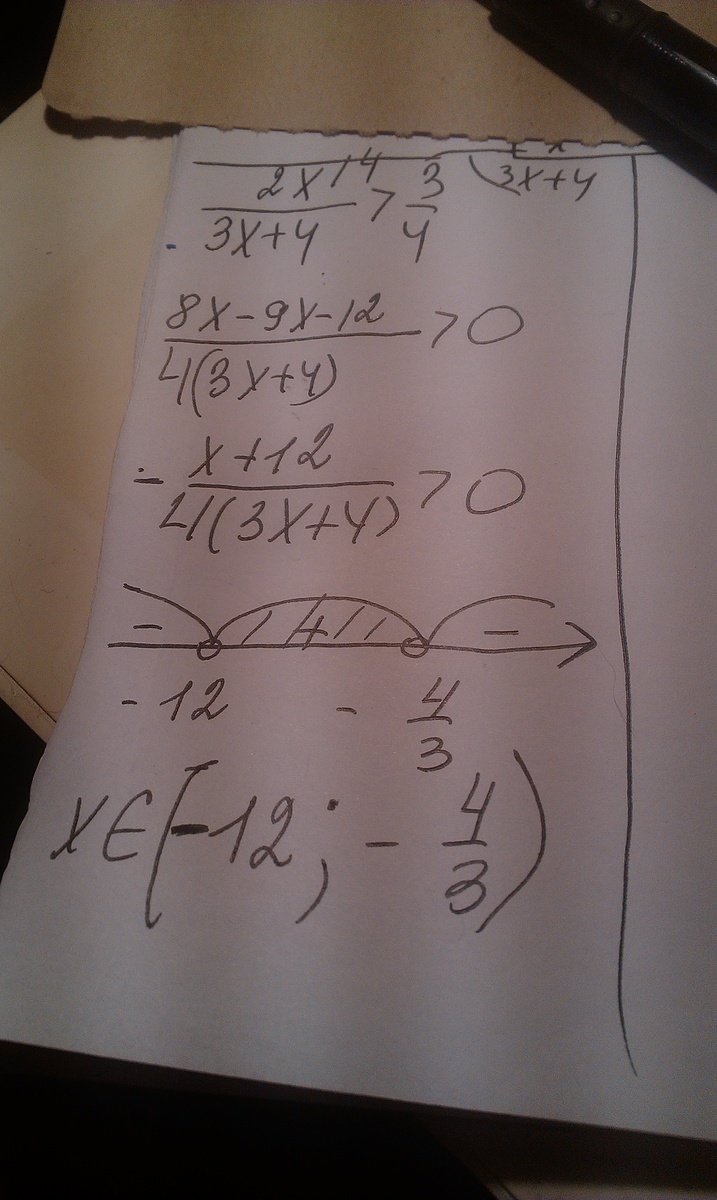 2x /4 > 3/4 \3x+4
3x+4
8x-9x-12 / 4(3x+4) > 0
- x+12 / 4(3x+4) > 0
- + -
-12 - 4/3
x∈(-12; - 4/3)